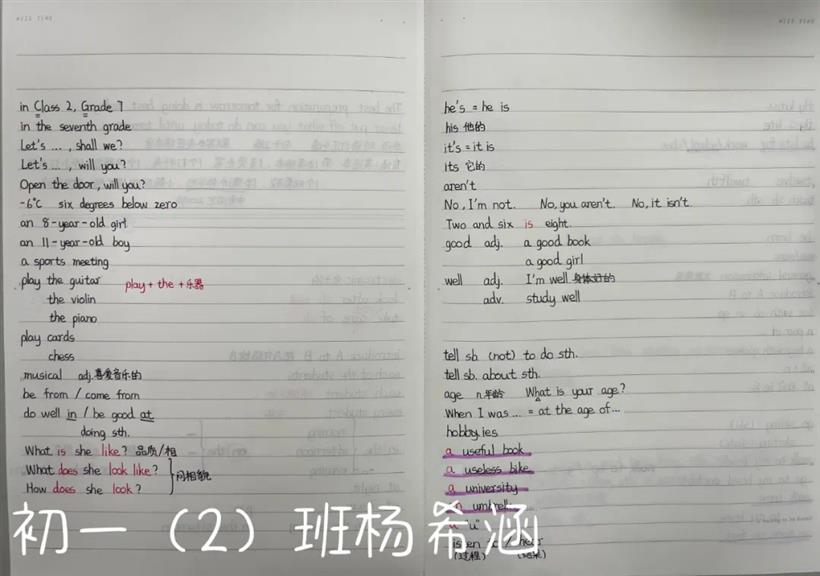 in Class 2, Grade 7
in the seventh grade
Let's ..., shall we?
Let's ..., will you?
Open the door, will you?
-6℃ six degrees below zero
an 8-year-old girl
an 11-year-old boy
a sports meeting
play the guitar play+the+乐器
the violin
the piano
play cards
chess
musical adj.喜爱音乐的
be from / come from
do well in / be good at
doing sth.
What is she like? 品质/相
What does she look like?
How does she look? 问相貌
he's = he is
his 他的
it's = it is
its 它的
aren't
No, I'm not. No, you aren't. No, it isn't.
Two and six is eight.
good adj. a good book
a good girl
well adj. I'm well 身体好的
adv. study well
tell sb. (not) to do sth.
tell sb. about sth.
age n.年龄 What is your age?
When I was ... = at the age of...
hobby ies
a useful book
a useless bike
a university
umbrell
"u"
hear
(过程) (结果)
初一（2）班杨希涵